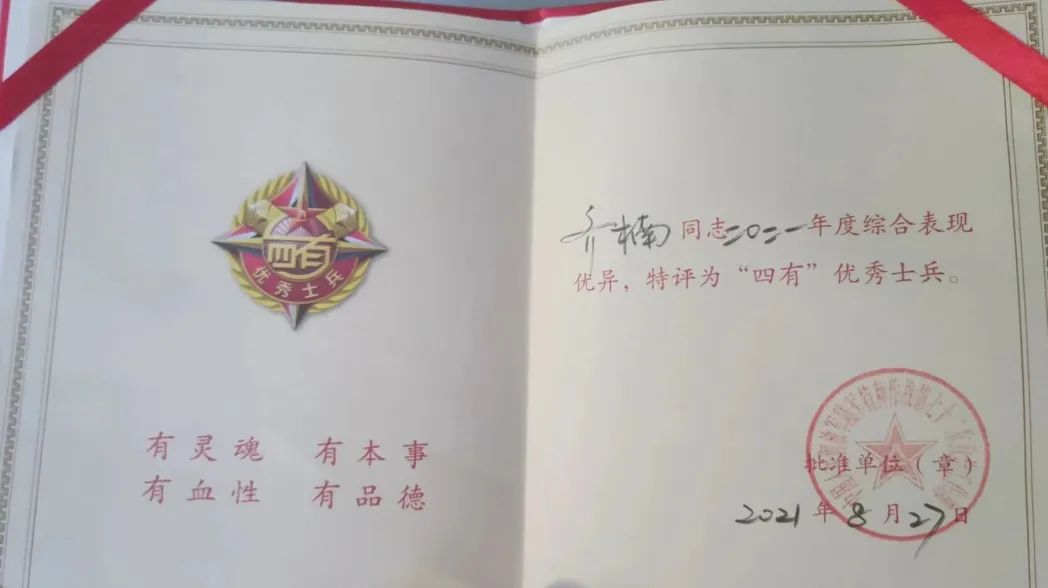 四有
优秀士兵
有灵魂 有本事
有血性 有品德
齐楠同志二〇二一年度综合表现
优异，特评为“四有”优秀士兵。
批准单位（章）
2021年8月27日